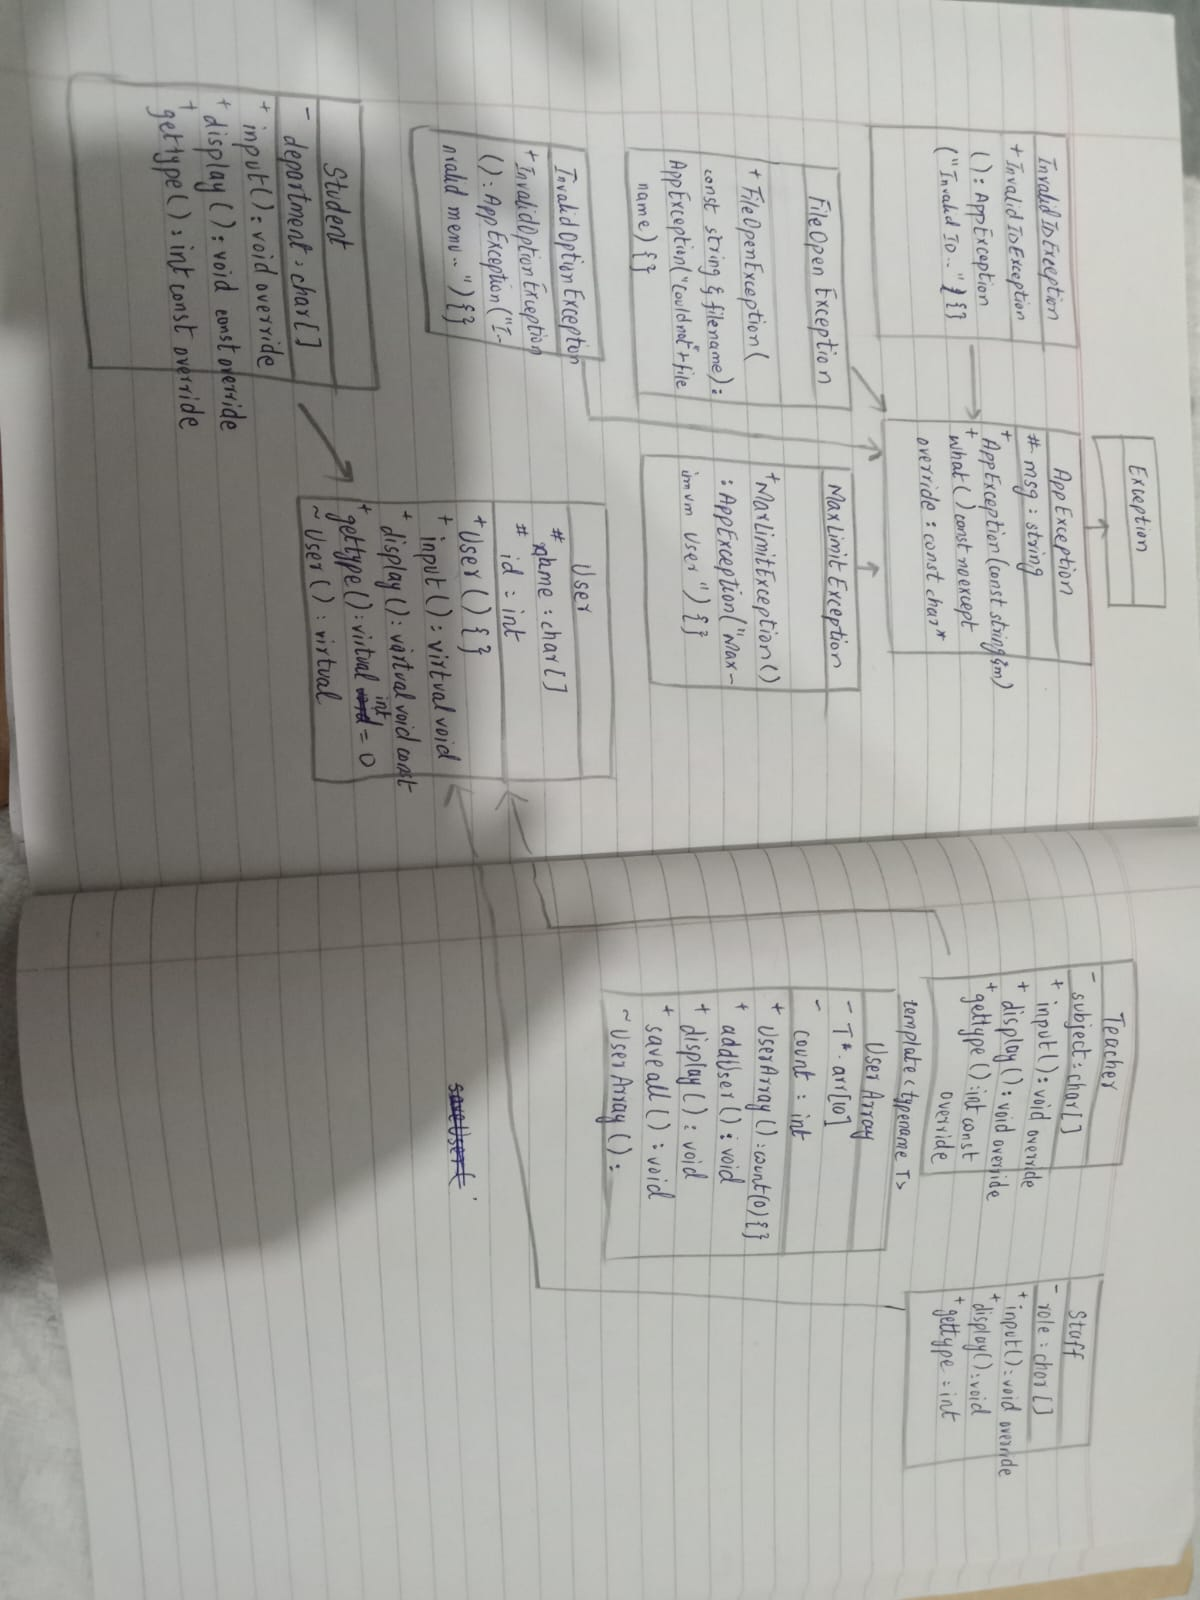 Exception
InvalidIdException
+ InvalidIdException
() : AppException
("Invalid ID.. ") {}
AppException
# msg : string
+ AppException(const string &m)
+ what() const noexcept
override : const char*
FileOpen Exception
+ FileOpenException(
const string & filename) :
AppException("could not"+file
name) {}
MaxLimit Exception
+ MaxLimitException()
: AppException("Max-
imum User ") {}
InvalidOptionException
+ InvalidOptionException
() : AppException("I-
nvalid menu .. ") {}
User
# name : char[]
# id : int
+ User() { }
+ input() : virtual void
+ display() : virtual void const
+ gettype() : virtual void int = 0
~ User() : virtual
Student
- department : char[]
+ input() : void override
+ display() : void const override
+ gettype() : int const override
Teacher
- subject : char[]
+ input() : void override
+ display() : void override
+ gettype() : int const
override
Staff
- role : char[]
+ input() : void override
+ display() : void
+ gettype : int
template < typename T>
User Array
- T* arr[10]
- count : int
+ UserArray() : count(0) { }
+ addUser() : void
+ display() : void
+ save all() : void
~ UserArray() :
saveUser(